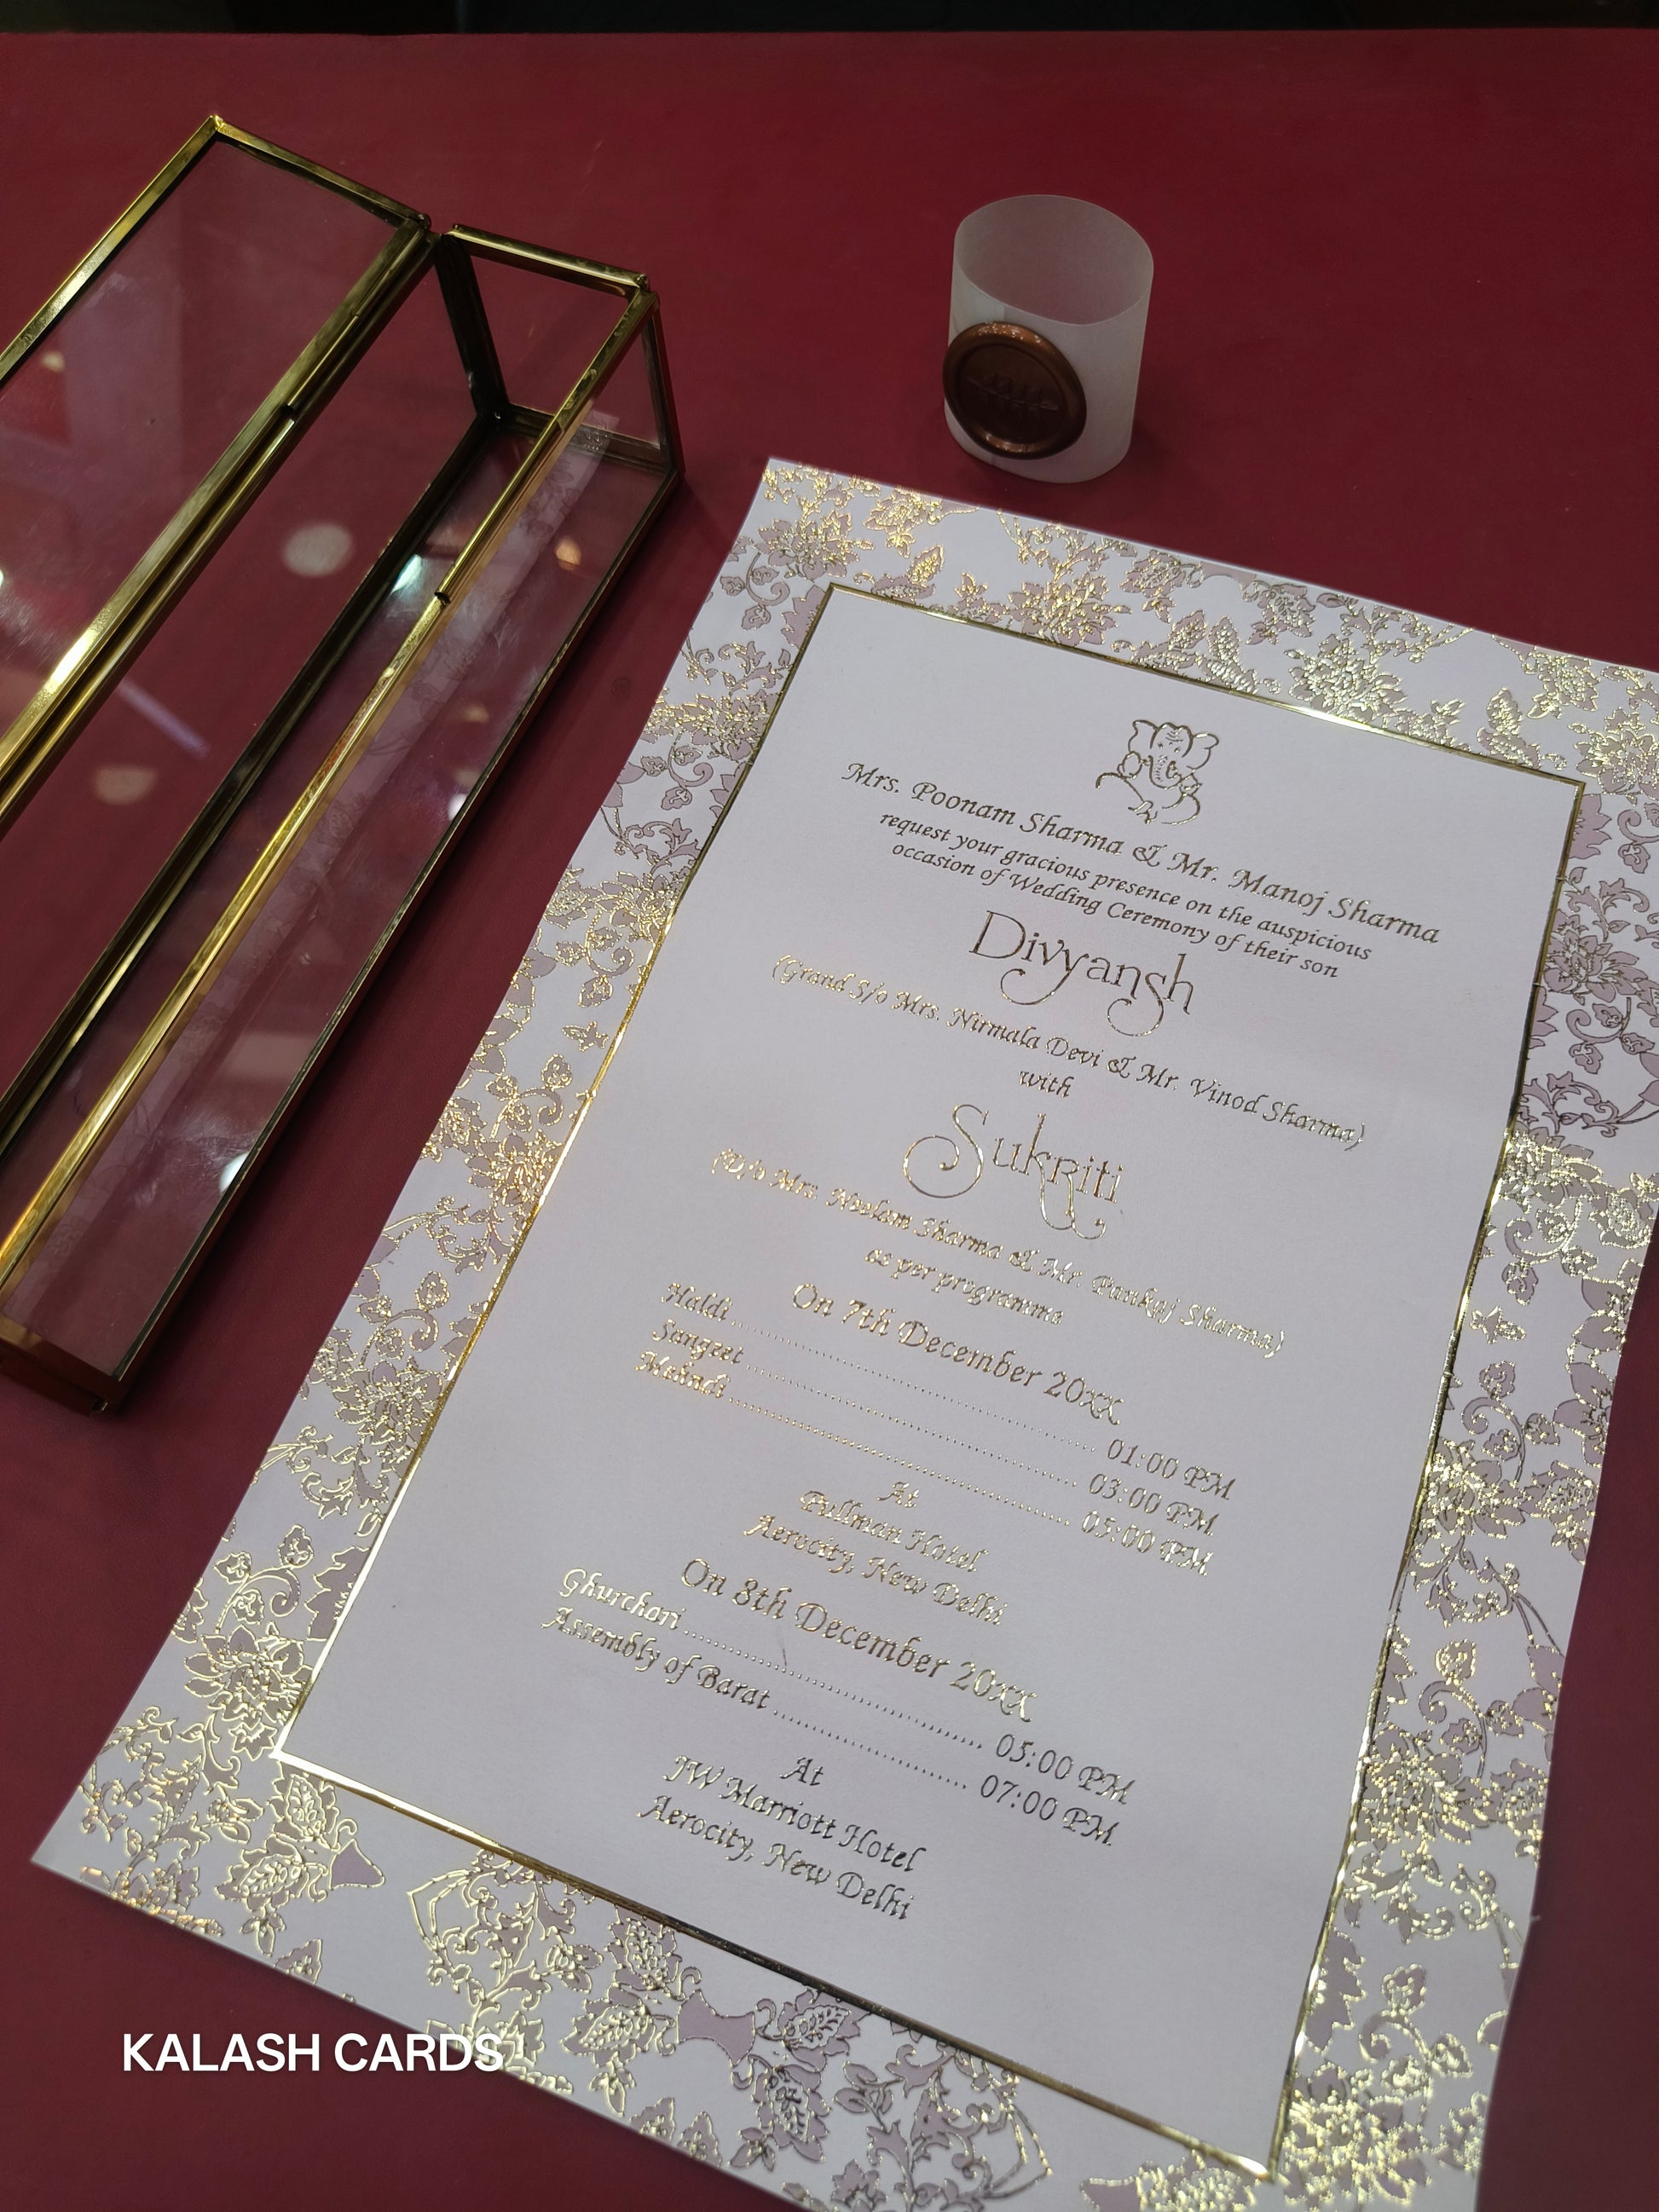 Mrs. Poonam Sharma & Mr. Manoj Sharma
request your gracious presence on the auspicious
occasion of Wedding Ceremony of their son
Divyansh
(Grand S/o Mrs. Nirmala Devi & Mr. Vinod Sharma)
with
Sukriti
(D/o Mrs. Neelam Sharma & Mr. Pankaj Sharma)
as per programme
On 7th December 20XX
Haldi .......... 01:00 PM
Sangeet .......... 03:00 PM
Mehndi .......... 05:00 PM
At
Pullman Hotel
Aerocity, New Delhi
On 8th December 20XX
Ghurchari .......... 05:00 PM
Assembly of Barat .......... 07:00 PM
At
JW Marriott Hotel
Aerocity, New Delhi
KALASH CARDS